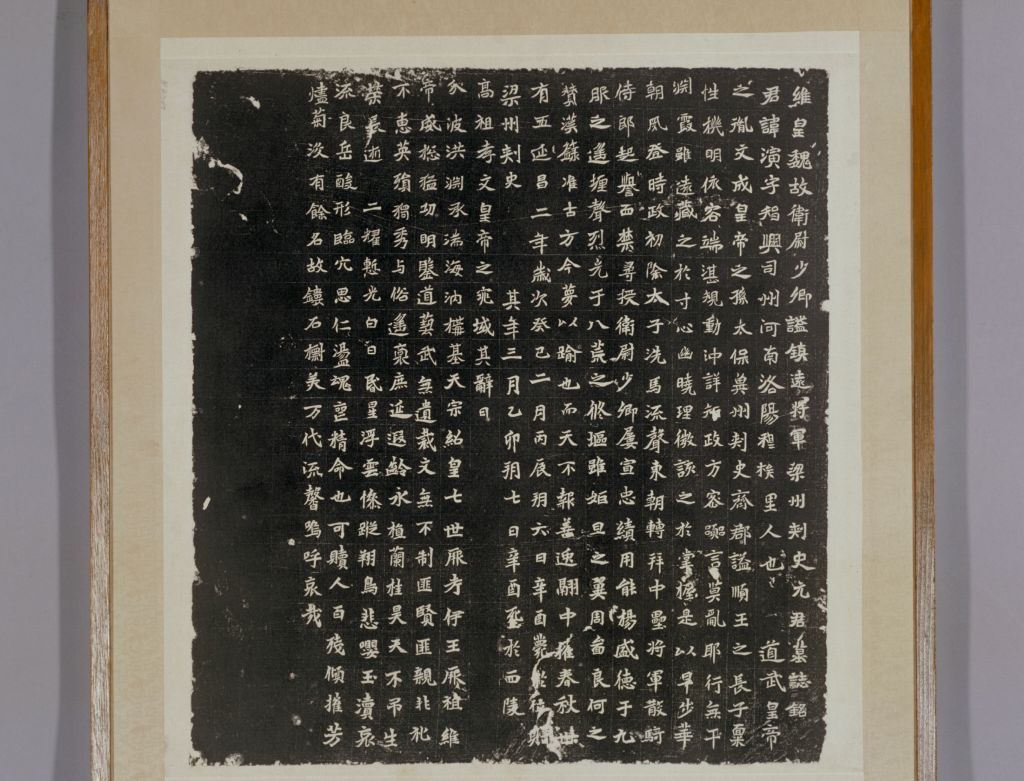 維皇魏故衛尉少卿謚鎮遠將軍梁州刾史元君墓誌銘
君諱演字智興司州河南洛陽穆族里人也 道武皇帝
之胤文成皇帝之孫太保冀州刾史齊郡謚順王之長子稟
性機明依容端湛規動沖詳知政方容 言莫亂耶行無干
渕霞雖遠藏之於寸心幽曉理微談之於掌握是以早步華
朝夙登時政初除太子洗馬流聲東朝轉拜中壘將軍散騎
侍郎起譽西禁尋授衛尉少卿屢宣忠績用能揚盛德于九
服之遙壃聲烈光于八荒之脩堰雖姬旦之翼周 良何之
贊漢蘇准古方今夢以踰也而天不報善逸翮中摧春秋卅
有五延昌二年歲次癸巳二月丙辰朔六日辛酉薨於
梁州刾史 其年三月乙卯朔七日辛酉 於西陵
高祖孝文皇帝之宛城其辭曰
攸波洪渕承流海汭 基天宗紹皇七世厥考伊王厥祖維
帝咸 猶功明鑒道藝武無遺裁文無不制匪賢匪親非礼
不惠英殞獨秀与俗遙稟庶延遐齡永植蘭桂昊天不弔生
榮長逝 二耀慙光白日昏星浮雲 蹤翔鳥悲嚶玉瀆哀
流良岳酸形臨穴思仁盪魂喪精命也可贖人百殘傾摧芳
燼菊沒有餘名故鏤石 美万代流聲嗚呼哀哉